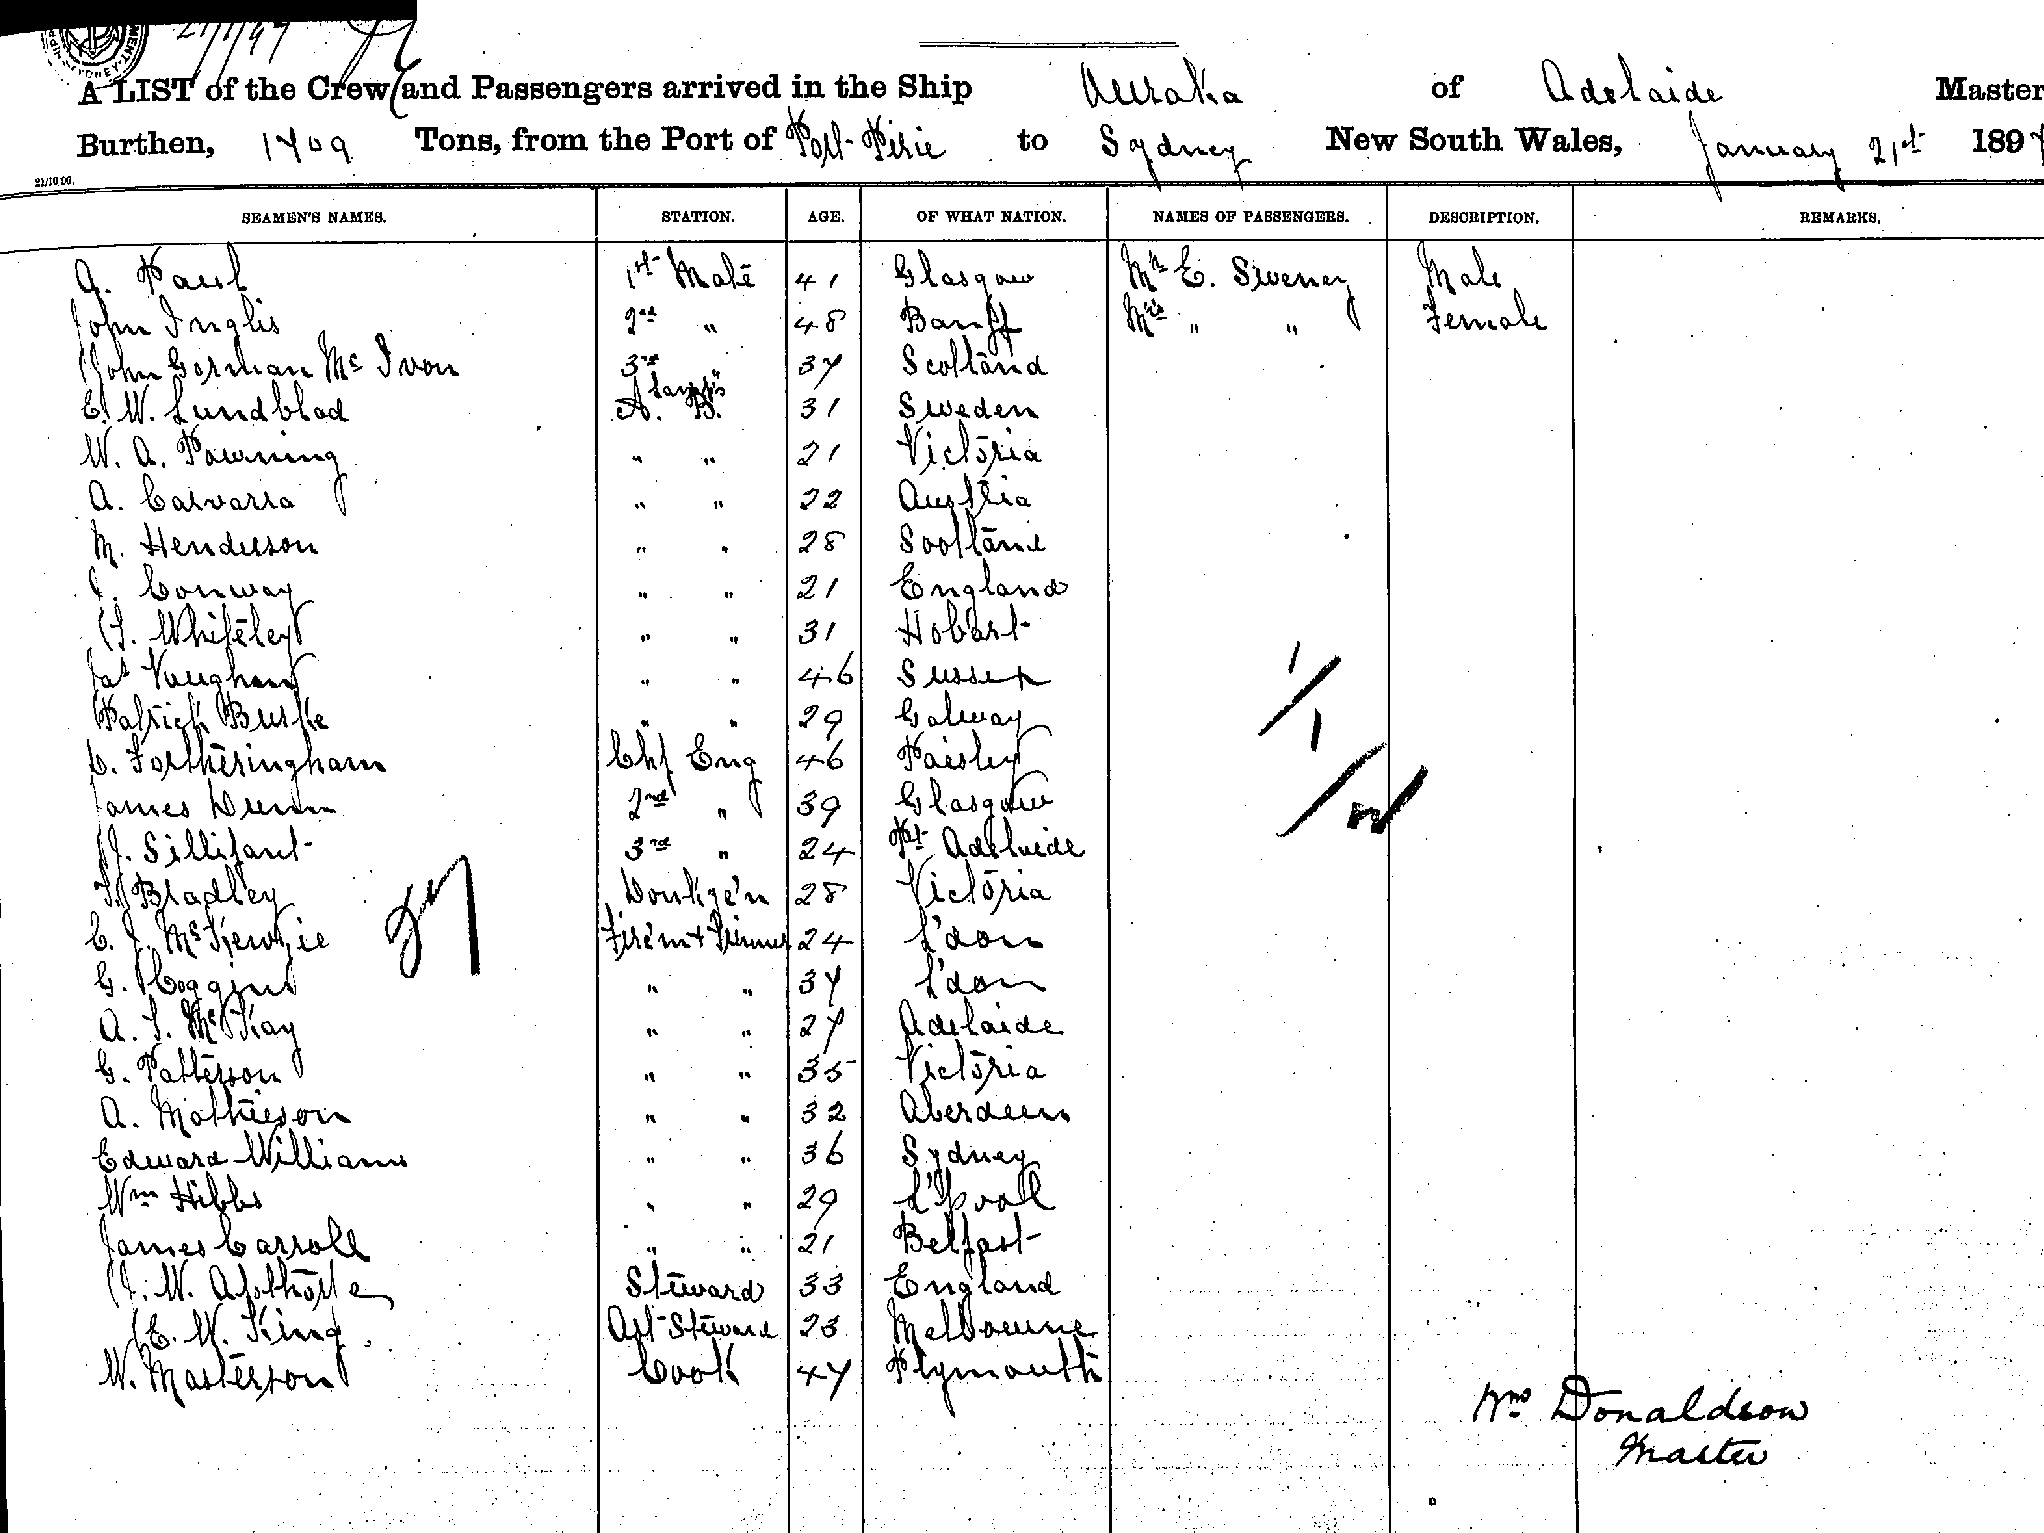 21/1/97
A LIST of the Crew and Passengers arrived in the Ship Auraka of Adelaide Master
Burthen, 1709 Tons, from the Port of Port Pirie to Sydney New South Wales, January 21st 1897
21/10 96.
SEAMEN'S NAMES. STATION. AGE. OF WHAT NATION. NAMES OF PASSENGERS. DESCRIPTION. REMARKS.
A. Paul 1st Mate 41 Glasgow Mr E. Sweney Male
John Inglis 2nd " 48 Banff Mrs " " Female
John Gorman Mc Ivor 3rd " 37 Scotland
E. W. Lundblad Lamps A. B. 31 Sweden
W. A. Pawning " " 21 Victoria
A. Carvarra " " 22 Austria
M. Henderson " " 28 Scotland
Conway " " 21 England
Whiteley " " 31 Hobart
Jas Vaughan " " 46 Sussex
Patrick Burke " " 29 Galway
C. Fortheringham Chf Eng 46 Paisley
James Dunn 2nd " 39 Glasgow
J. Sillifant 3rd " 24 Pt Adelaide
Bradley Donkye'n 28 Victoria
C. J. McKenzie Fire'm & Trimmer 24 L'don
G. Coggins " " 37 L'don
A. S. McKay " " 27 Adelaide
G. Patterson " " 35 Victoria
A. Mathieson " " 32 Aberdeen
Edward Williams " " 36 Sydney
Wm Hibbs " " 29 L'pool
James Carroll " " 21 Belfast
J. W. Steward 33 England
E. W. King Ast Steward 23 Melbourne
W. Masterson Cook 47 Plymouth
Wm Donaldson
Master